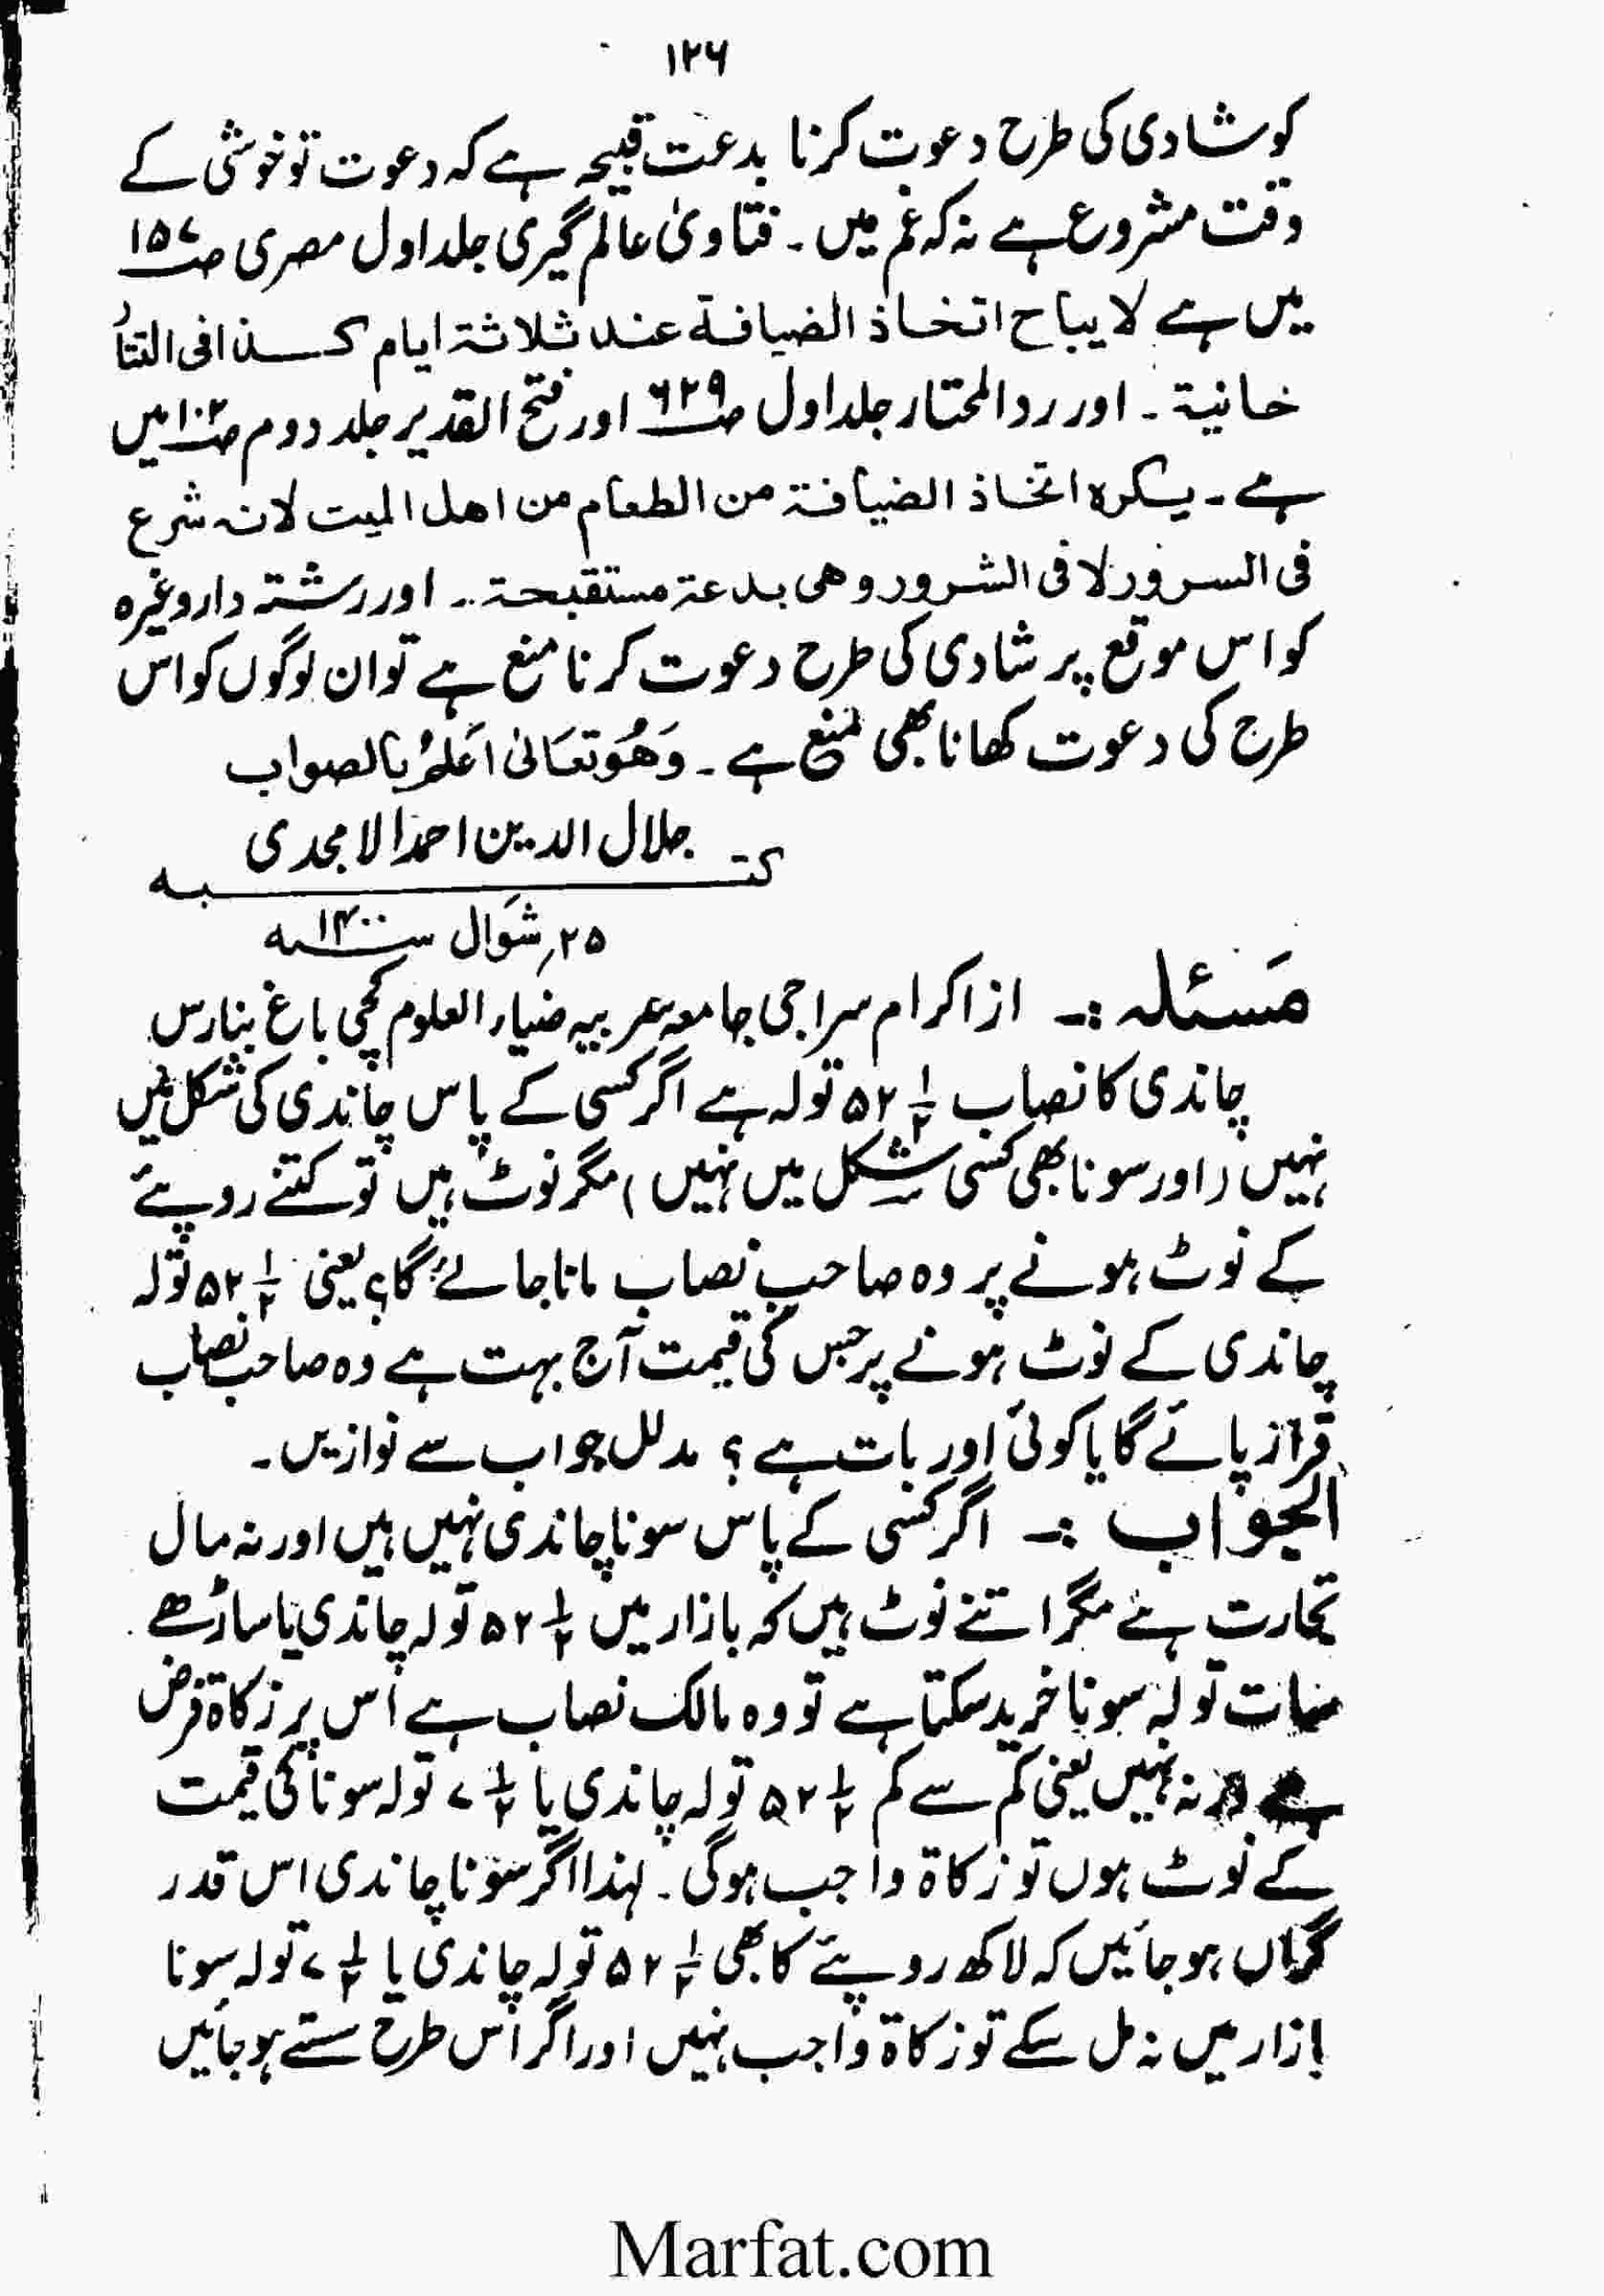 ۱۲۶
کو شادی کی طرح دعوت کرنا بدعت قبیحہ ہے کہ دعوت تو خوشی کے
وقت مشروع ہے نہ کہ غم میں ۔ فتاویٰ عالم گیری جلد اول مصری صـ ۱۵۷
میں ہے لا یباح اتخاذ الضیافۃ عند ثلاثۃ ایام کـذا فی التتأر
خانیۃ ۔ اور رد المحتار جلد اول صـ ۶۲۹ اور فتح القدیر جلد دوم صـ ۱۰۲ میں
ہے ۔ یکرہ اتخاذ الضیافۃ من الطعام من اھل المیت لانہ شرع
فی السرور لا فی الشرور وھی بدعۃ مستقبحۃ ۔۔ اور رشتہ دار وغیرہ
کو اس موقع پر شادی کی طرح دعوت کرنا منع ہے تو ان لوگوں کو اس
طرح کی دعوت کھانا بھی منع ہے ۔ وَھُوَ تعَالیٰ اَعلمُ بالصواب
جلال الدین احمد الامجدی
کتبـــــہ
۲۵؍ شوال سنہ ۱۴۰۰
مَسئلہ :۔ از اکرام سراجی جامعہ عربیہ ضیاء العلوم کچی باغ بنارس
چاندی کا نصاب ۵۲ ۱/۲ تولہ ہے اگر کسی کے پاس چاندی کی شکل میں
نہیں (اور سونا بھی کسی شکل میں نہیں) مگر نوٹ ہیں تو کتنے روپئے
کے نوٹ ہونے پر وہ صاحب نصاب مانا جائے گا؟ یعنی ۵۲ ۱/۲ تولہ
چاندی کے نوٹ ہونے پر جس کی قیمت آج بہت ہے وہ صاحب نصاب
قرار پائے گا یا کوئی اور بات ہے ؟ مدلل جواب سے نوازیں ۔
الجواب :۔ اگر کسی کے پاس سونا چاندی نہیں ہیں اور نہ مال
تجارت ہے مگر اتنے نوٹ ہیں کہ بازار میں ۵۲ ۱/۲ تولہ چاندی یا ساڑھے
سات تولہ سونا خرید سکتا ہے تو وہ مالک نصاب ہے اس پر زکاۃ فرض
ہے ورنہ نہیں یعنی کم سے کم ۵۲ ۱/۲ تولہ چاندی یا ۷ ۱/۲ تولہ سونا کی قیمت
کے نوٹ ہوں تو زکاۃ واجب ہوگی ۔ لہٰذا اگر سونا چاندی اس قدر
گراں ہو جائیں کہ لاکھ روپئے کا بھی ۵۲ ۱/۲ تولہ چاندی یا ۷ ۱/۲ تولہ سونا
بازار میں نہ مل سکے تو زکاۃ واجب نہیں اور اگر اس طرح سستے ہو جائیں
Marfat.com